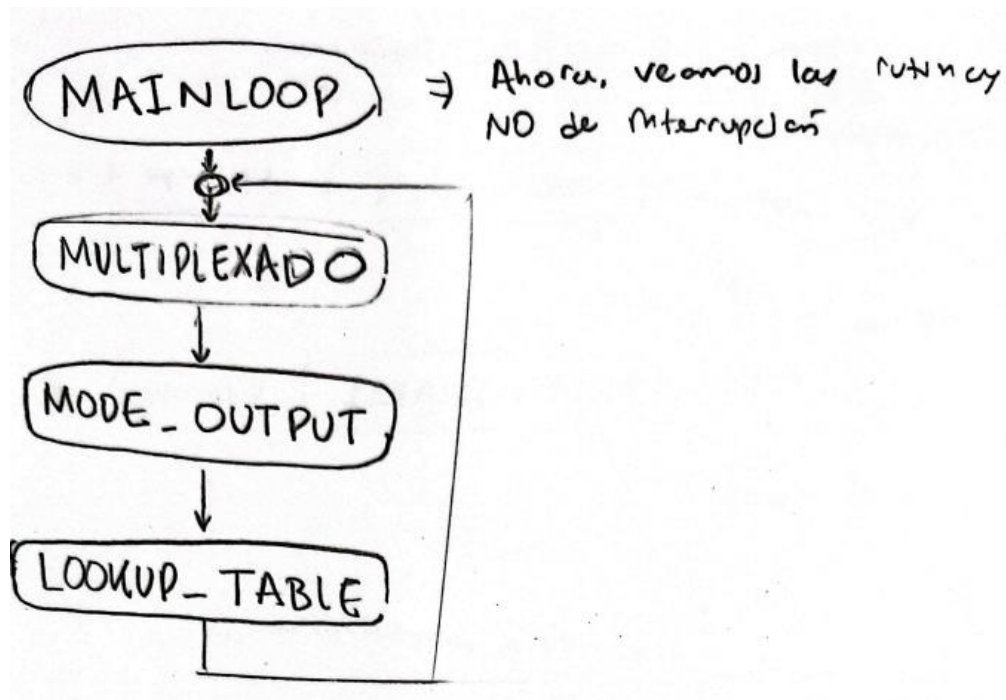 MAINLOOP
⇒ Ahora, veamos las rutinas
NO de interrupción
MULTIPLEXADO
MODE_OUTPUT
LOOKUP_TABLE